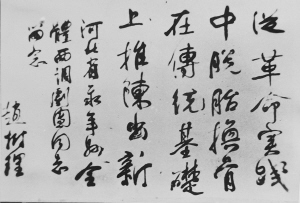 從革命实踐
中脱胎换骨
在傳统基礎
上推陳出新
河北省永年县全
體西调劇團同志
留念
趙樹理